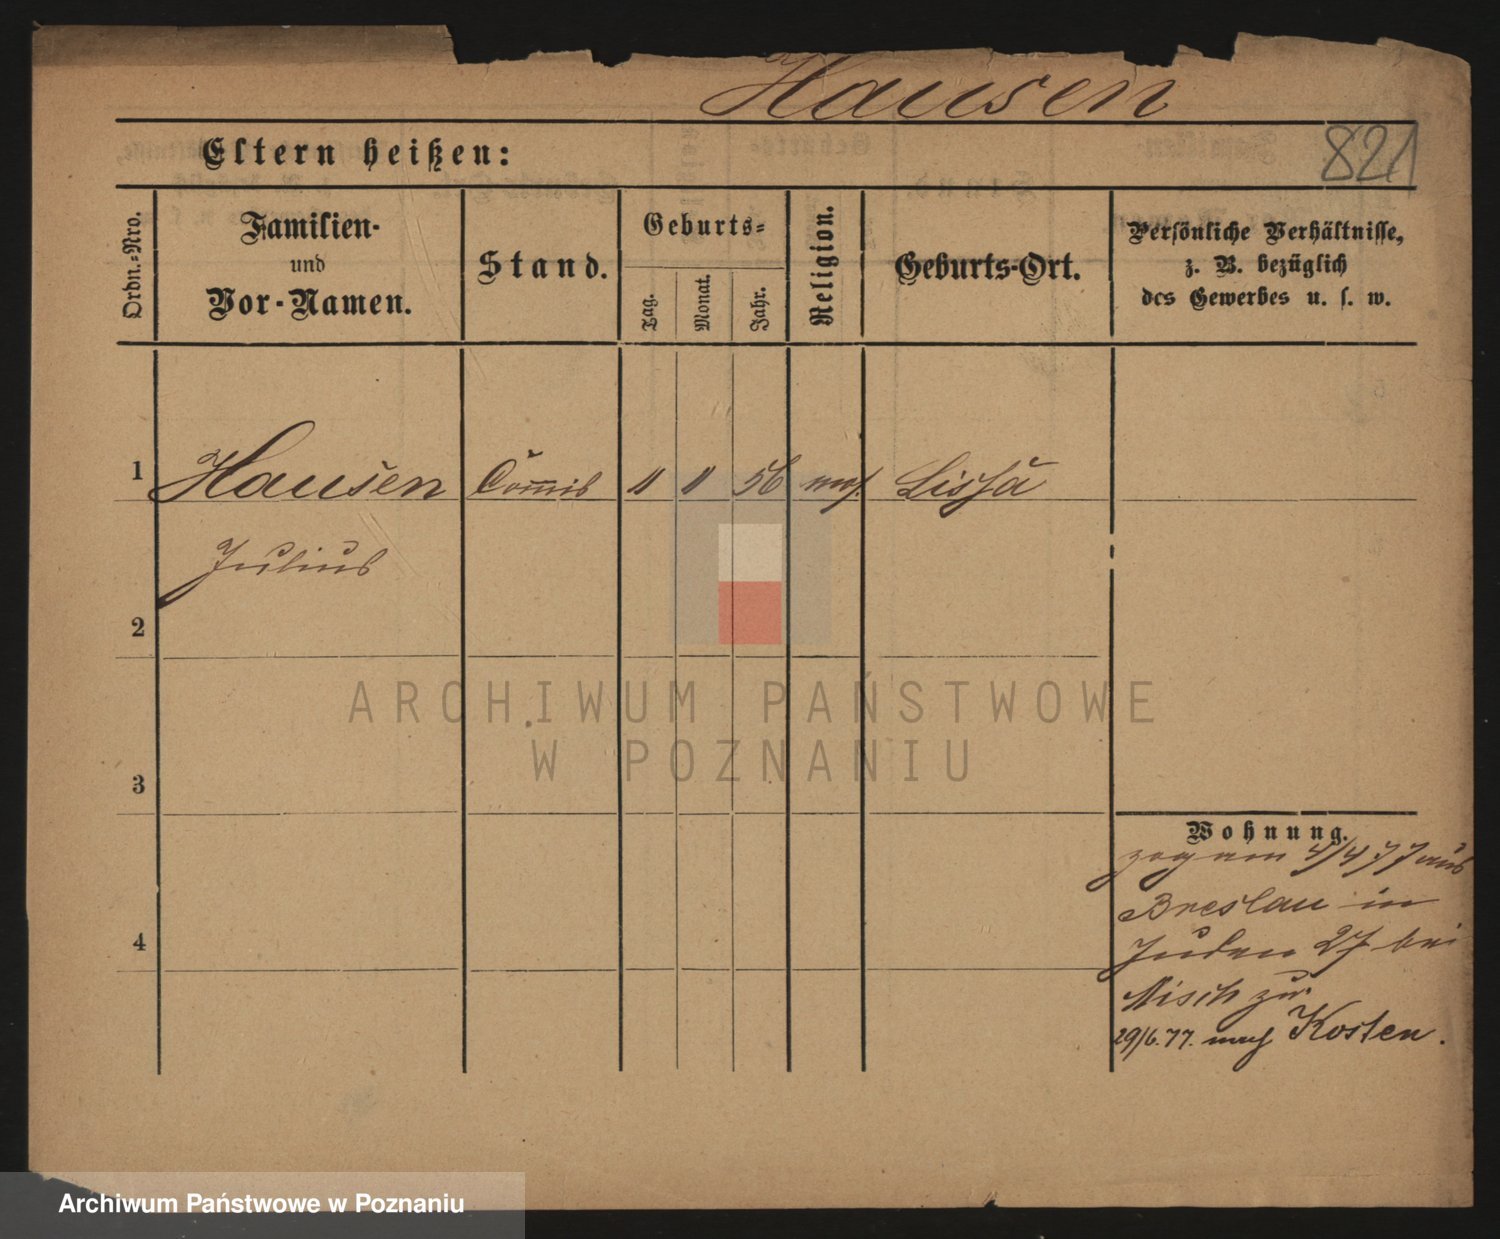 Hausen
Eltern heißen:
821
Ordn.-Nro.
Familien-
und
Vor-Namen.
Stand.
Geburts-
Tag.
Monat.
Jahr.
Religion.
Geburts-Ort.
Persönliche Verhältnisse,
z. B. bezüglich
des Gewerbes u. s. w.
1
Hausen Commis 11 11 56 mos. Lissa
Julius
2
ARCHIWUM PAŃSTWOWE
W POZNANIU
3
Wohnung.
zog am 4/4 77 aus
Breslau in
4
Juden 27 bei
Misch zu
29/6.77. nach Kosten.
Archiwum Państwowe w Poznaniu